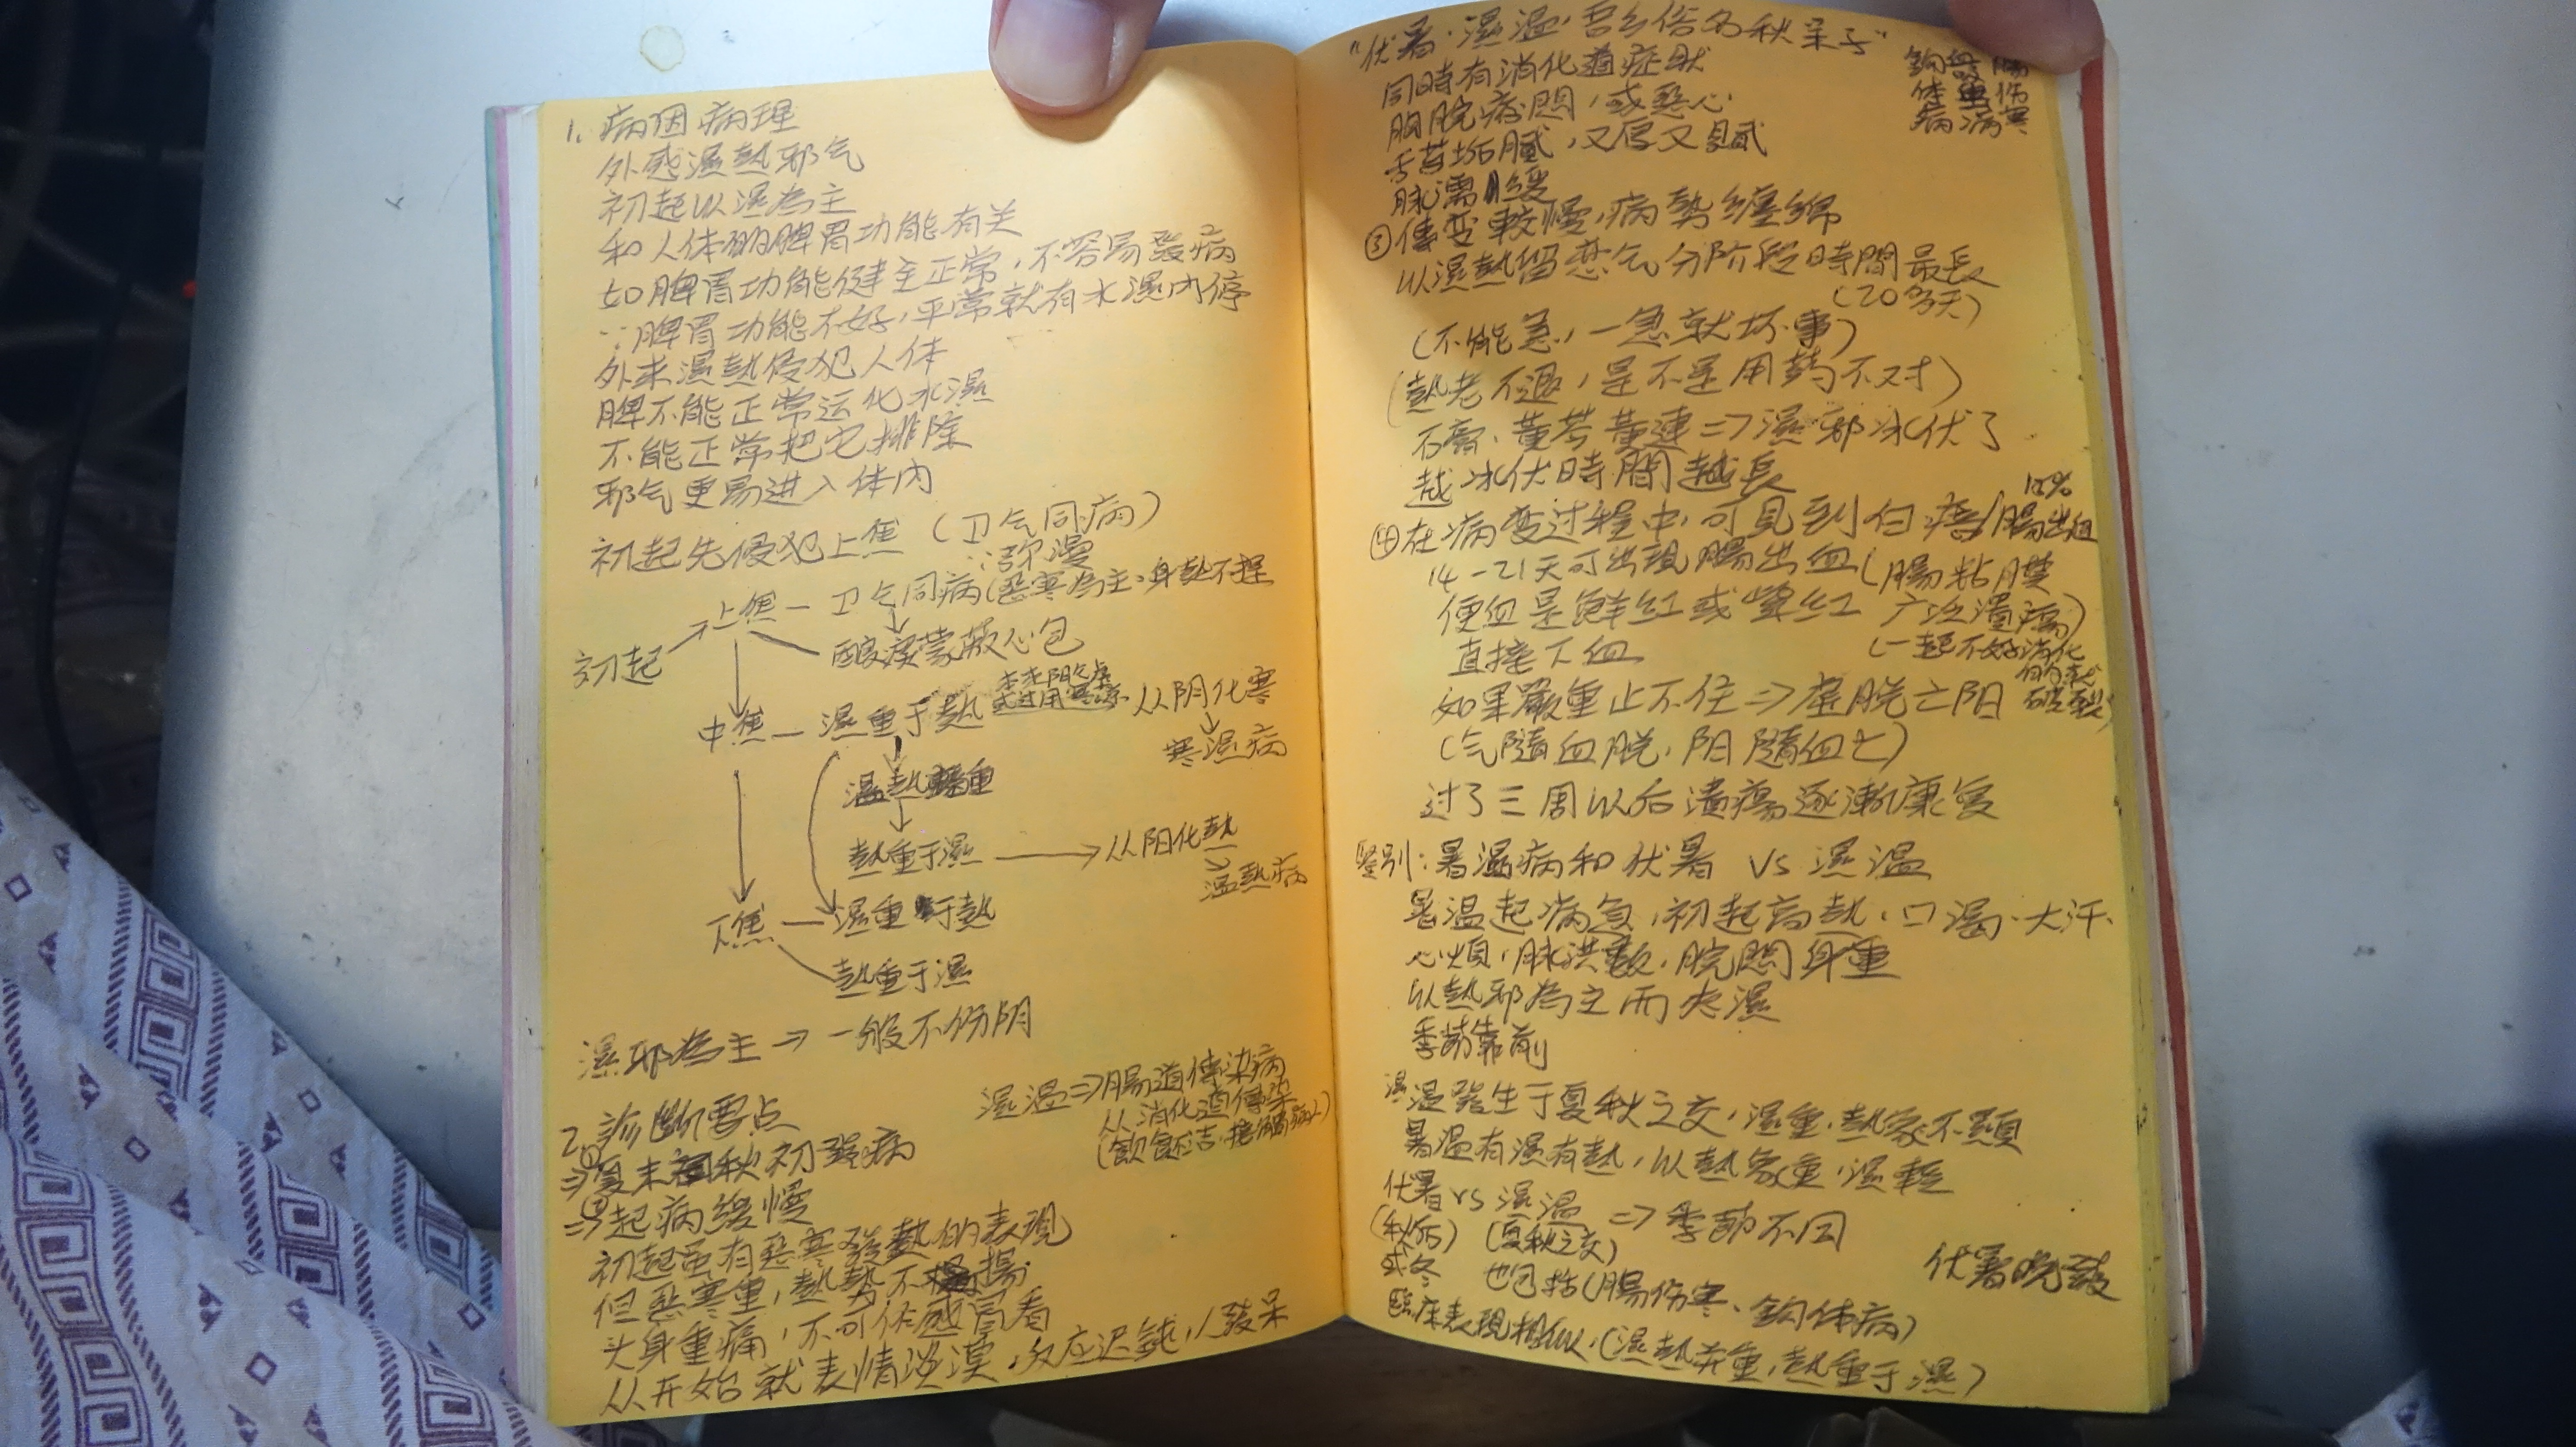 1. 病因病理
外感濕熱邪气
初起以濕為主
和人体的脾胃功能有关
如脾胃功能健全正常，不容易發病
∵脾胃功能不好，平常就有水濕内停
外来濕熱侵犯人体
脾不能正常运化水濕
不能正常把它排除
邪气更易进入体内
初起先侵犯上焦（卫气同病）
∴弥漫
初起
上焦－卫气同病（惡寒為主，身熱不揚
酿痰蒙蔽心包
中焦－濕重于熱
本来阳气虚
或过用寒涼
从阴化寒
寒濕病
濕熱并重
熱重于濕
从阳化熱
溫熱病
下焦－濕重于熱
熱重于濕
濕邪為主→一般不伤阴
2. 診断要点
濕溫⇒腸道傳染病
从消化道傳染
（飲食不洁，接觸病人）
①⇒夏末秋初發病
②⇒起病缓慢
初起虽有惡寒發熱的表現
但惡寒重，熱势不揚
头身重痛，不可作感冒看
从开始就表情淡漠，反应迟鈍，/發呆
“伏暑、濕溫，吾乡俗名秋呆子”
同時有消化道症狀
鈎 腸
体 伤
病 寒
胸脘痞悶，或惡心
舌苔垢膩，又厚又膩
脉濡缓
③傳变較慢，病势纏绵
以濕熱留恋气分阶段時間最長
（20多天）
（不能急，一急就坏事）
（熱老不退，是不是用葯不对）
石膏、黄芩黄連⇒濕邪冰伏了
越冰伏時間越長
④在病变过程中，可見到白㾦/腸出血
14－21天可出現腸出血（腸粘膜
便血是鲜红或紫红 广泛潰瘍）
直接下血
（一起不好消化
的就
破裂）
如果嚴重止不住⇒虚脱亡阳
（气隨血脱，阳隨血亡）
过了三周以后潰瘍逐漸康复
鉴别：暑濕病和伏暑 VS 濕溫
暑溫起病急，初起高熱、口渴、大汗、
心煩，脉洪數，脘悶身重
以熱邪為主而夹濕
季節靠前
濕溫發生于夏秋之交，濕重，熱象不顯
暑溫有濕有熱，以熱象重，濕輕
伏暑 vs 濕溫 ⇒季節不同
（秋后）（夏秋之交）
或冬
伏暑晚發
也包括（腸伤寒、鈎体病）
臨床表現相似，（濕熱并重，熱重于濕）